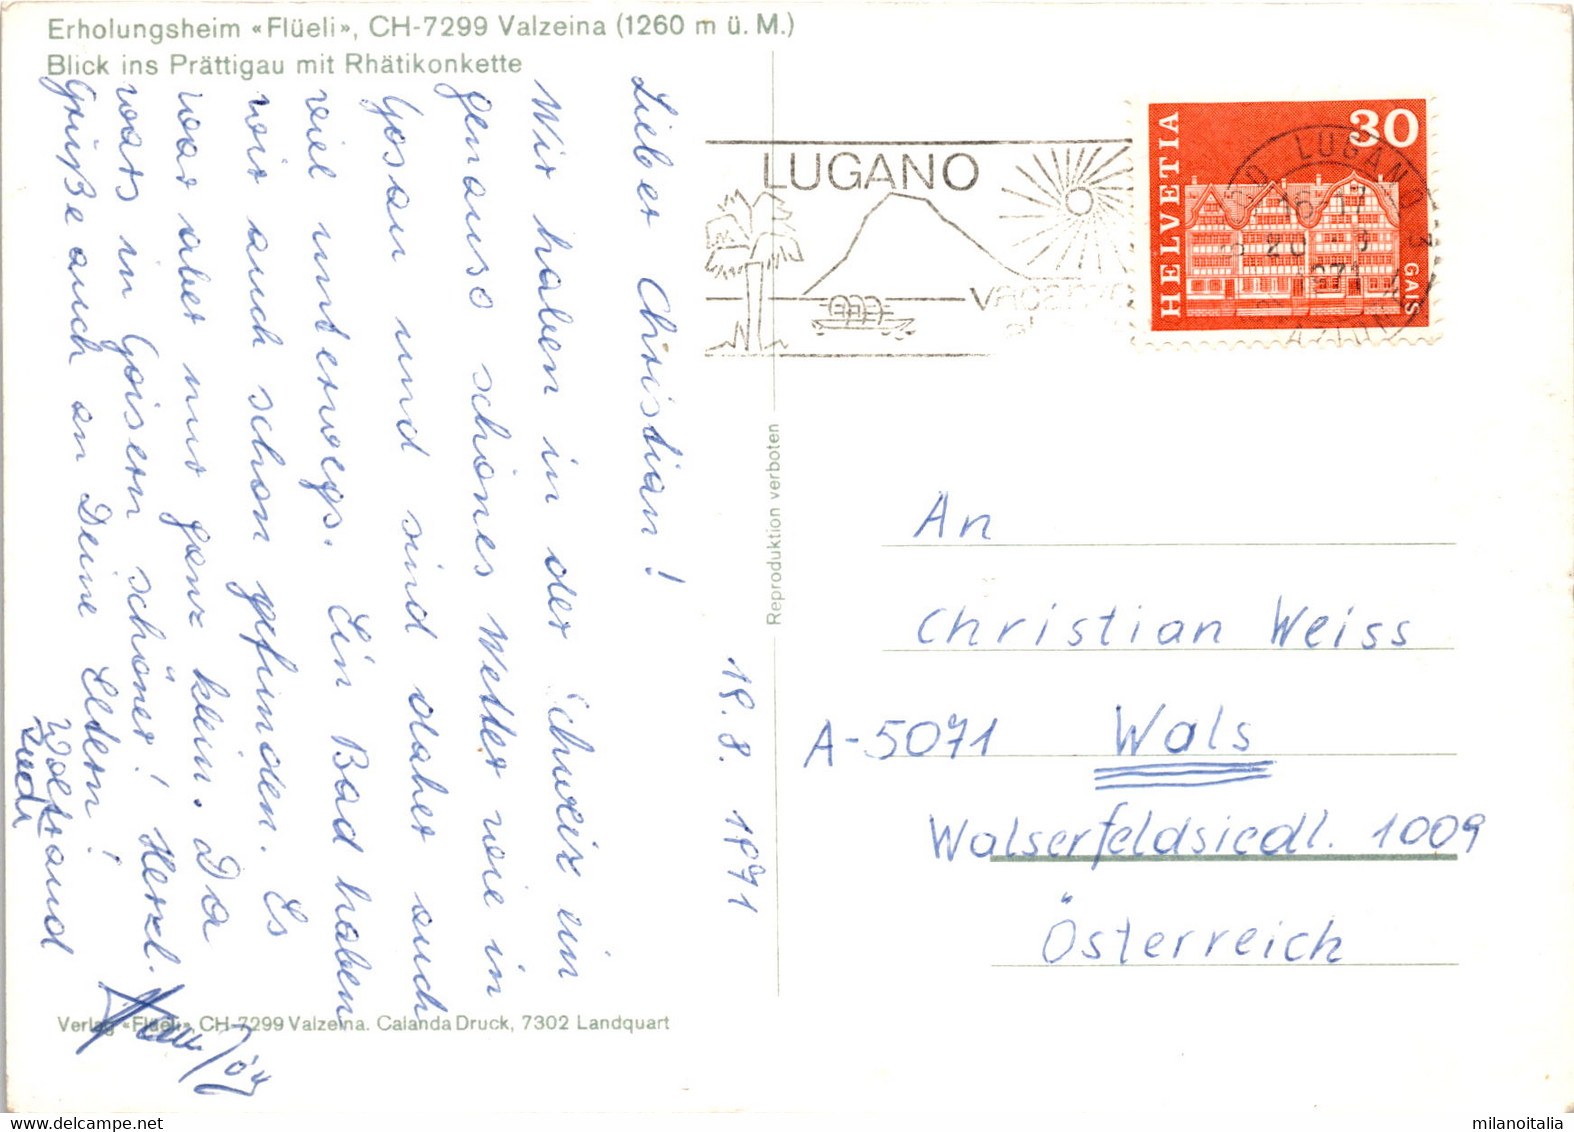 Erholungsheim «Flüeli», CH-7299 Valzeina (1260 m ü. M.)
Blick ins Prättigau mit Rhätikonkette
Lieber Christian!
Wir haben in der Schweiz ein
genauso schönes Wetter wie in
Gosau und sind daher auch
viel unterwegs. Ein Bad haben
wir auch schon gefunden. Es
war aber nur ganz klein. Da
wars in Goisern schöner! Herzl.
Grüße auch an Deine Eltern!
Woltraud
19. 8. 1971
Reproduktion verboten
LUGANO
HELVETIA
30
GAIS
LUGANO 3
16-17
20
1971
An
Christian Weiss
A-5071 Wals
Walserfeldsiedl. 1009
Österreich
Verlag «Flüeli», CH-7299 Valzeina. Calanda Druck, 7302 Landquart
milanoitalia
www.delcampe.net